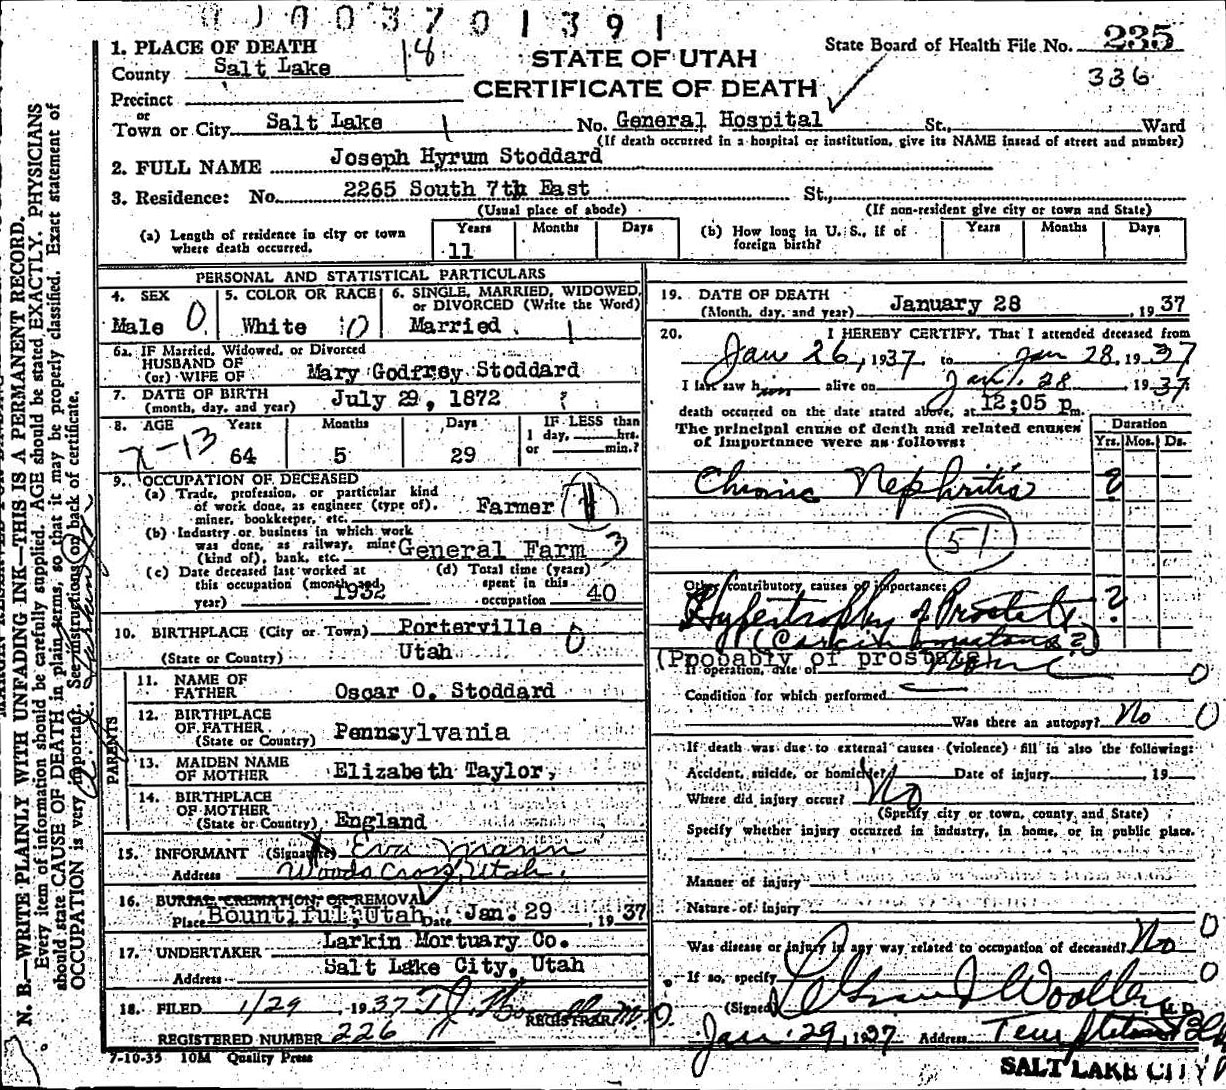 0003701391
1. PLACE OF DEATH
County Salt Lake 18
STATE OF UTAH
CERTIFICATE OF DEATH
State Board of Health File No. 235
336
Precinct
or
Town or City Salt Lake No. General Hospital St., Ward
(If death occurred in a hospital or institution, give its NAME instead of street and number)
2. FULL NAME Joseph Hyrum Stoddard
3. Residence: No. 2265 South 7th East St.,
(Usual place of abode) (If non-resident give city or town and State)
(a) Length of residence in city or town where death occurred. Years 11 Months Days
(b) How long in U. S., if of foreign birth? Years Months Days
PERSONAL AND STATISTICAL PARTICULARS
4. SEX Male 0
5. COLOR OR RACE White 0
6. SINGLE, MARRIED, WIDOWED, or DIVORCED (Write the Word) Married 1
6a. IF Married, Widowed, or Divorced
HUSBAND OF
(or) WIFE OF Mary Godfrey Stoddard
7. DATE OF BIRTH
(month, day, and year) July 29, 1872 ?
8. AGE Years Months Days IF LESS than
1 day, hrs.
or min.?
64 5 29
9. OCCUPATION OF DECEASED
(a) Trade, profession, or particular kind
of work done, as engineer (type of),
miner, bookkeeper, etc. Farmer
(b) Industry or business in which work
was done, as railway, mine
(kind of), bank, etc. General Farm 3
(c) Date deceased last worked at
this occupation (month and
year) 1932
(d) Total time (years)
spent in this
occupation 40
10. BIRTHPLACE (City or Town) Porterville 0
(State or Country) Utah
PARENTS
11. NAME OF
FATHER Oscar O. Stoddard
12. BIRTHPLACE
OF FATHER
(State or Country) Pennsylvania
13. MAIDEN NAME
OF MOTHER Elizabeth Taylor,
14. BIRTHPLACE
OF MOTHER
(State or Country) England
15. INFORMANT (Signature) X Eva Mann
Address Woods Cross, Utah.
16. BURIAL, CREMATION, OR REMOVAL
Place Bountiful, Utah Date Jan. 29, 1937
17. UNDERTAKER Larkin Mortuary Co.
Address Salt Lake City, Utah
18. FILED 1/29, 1937 M.D.
REGISTRAR
REGISTERED NUMBER 226
7-10-35 10M Quality Press
19. DATE OF DEATH
(Month, day, and year) January 28, 1937
20. I HEREBY CERTIFY, That I attended deceased from
Jan 26, 1937 to Jan 28, 1937
I last saw him alive on Jan. 28 1937
death occurred on the date stated above, at 12:05 p m.
The principal cause of death and related causes
of importance were as follows:
Duration
Yrs. Mos. Ds.
Chronic Nephritis ?
51
Other contributory causes of importance:
Hypertrophy of Prostate ?
(Carcinomatous?)
(Probably of prostate)
If operation, date of None 0
Condition for which performed
Was there an autopsy? No 0
If death was due to external causes (violence) fill in also the following:
Accident, suicide, or homicide? Date of injury 19
Where did injury occur? No
(Specify city or town, county, and State)
Specify whether injury occurred in industry, in home, or in public place.
Manner of injury
Nature of injury
0
Was disease or injury in any way related to occupation of deceased? No
If so, specify 0
(Signed) M. D.
Jan. 29, 1937 Address
SALT LAKE CITY
N. B.—WRITE PLAINLY WITH UNFADING INK—THIS IS A PERMANENT RECORD.
Every item of information should be carefully supplied. AGE should be stated EXACTLY. PHYSICIANS
should state CAUSE OF DEATH in plain terms, so that it may be properly classified. Exact statement of
OCCUPATION is very important. See instructions on back of certificate.